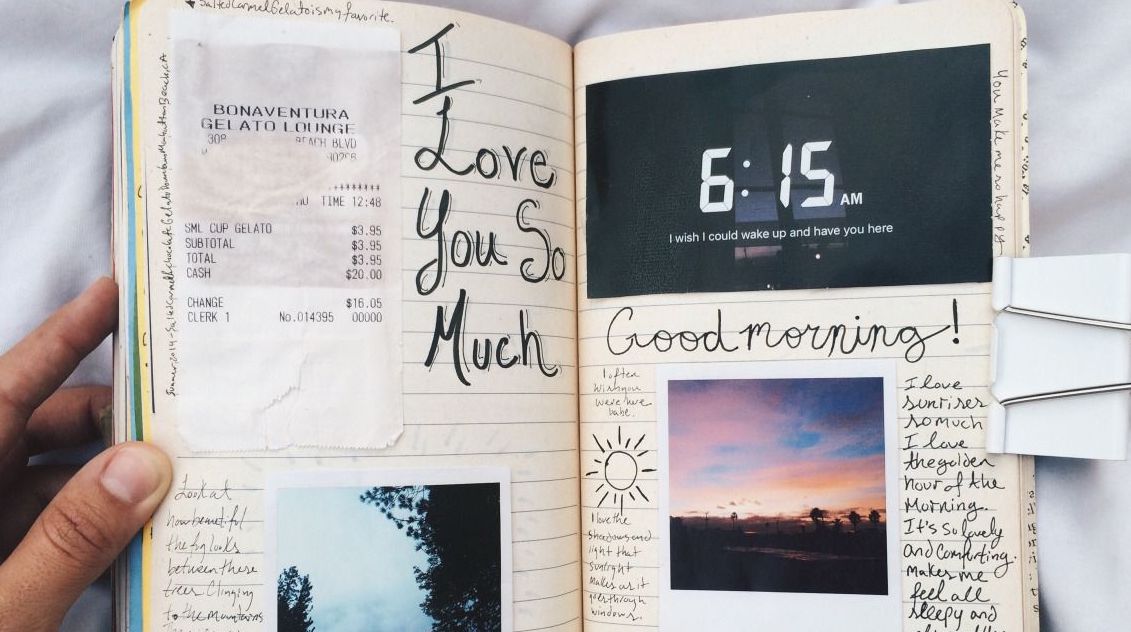 Salted Carmel Gelato is my favorite.
BONAVENTURA
GELATO LOUNGE
308 BEACH BLVD
TIME 12:48
SML CUP GELATO $3.95
SUBTOTAL $3.95
TOTAL $3.95
CASH $20.00
CHANGE $16.05
CLERK 1 No.014395 00000
I
Love
You So
Much
Look at
how beautiful
the fog looks
between these
trees Clinging
to the mountains
6:15 AM
I wish I could wake up and have you here
You Make me so happy
Good morning!
I often
wish you
were here
babe.
I love the
shadows and
light that
sunlight
makes as it
goes through
windows.
I love
sunrises
so much
I love
the golden
hour of the
Morning.
It's so lovely
and comforting.
makes me
feel all
sleepy and